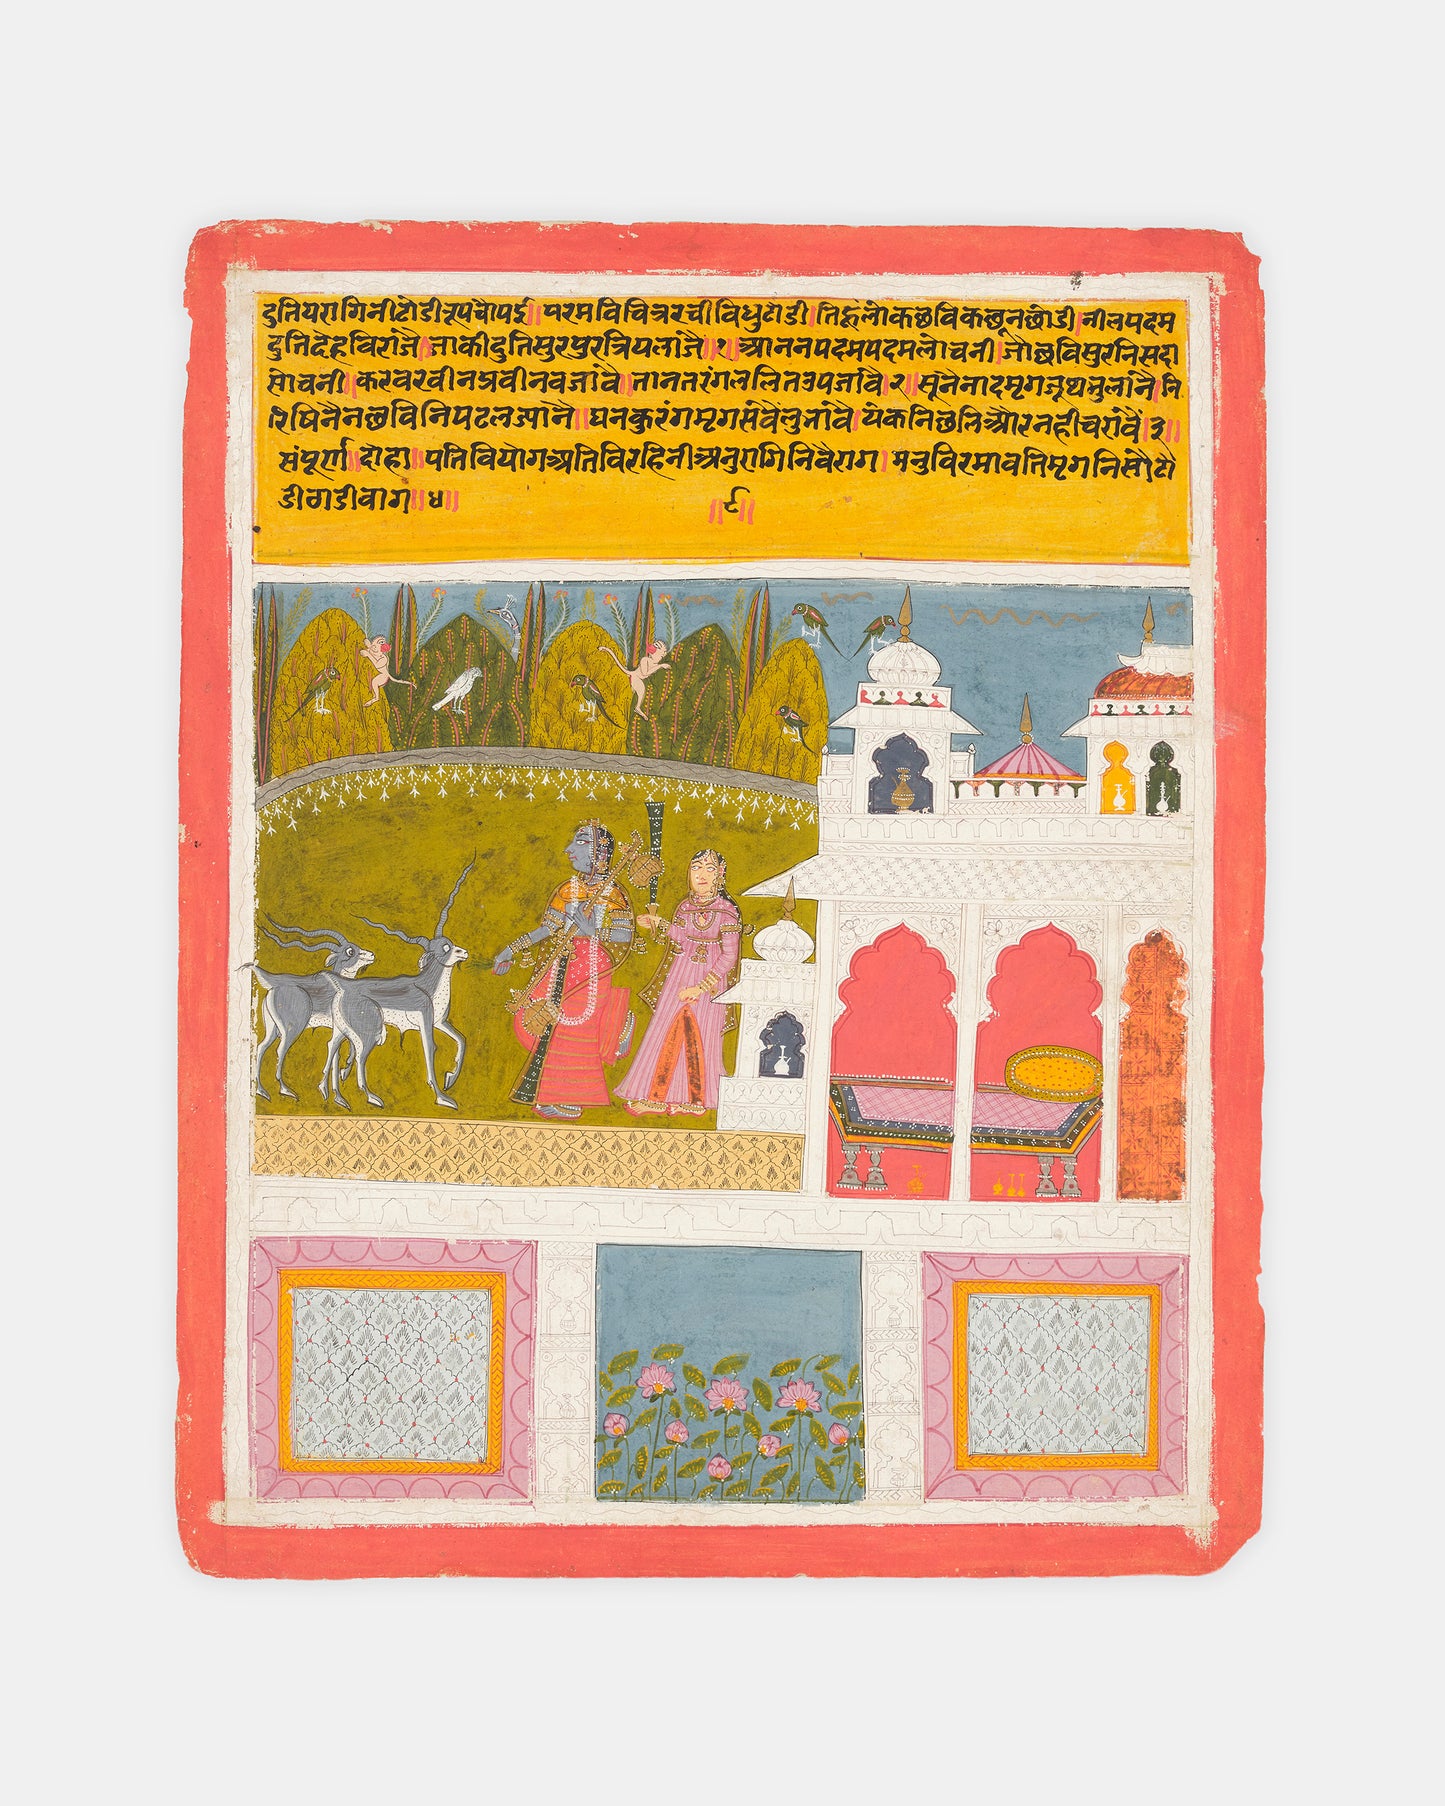 दुतियरागिनीटोडीनृपचौपई॥परमविचित्ररचीविधुटोडी।तिहुलोकछविकछूनछोडी।नीलपदम
दुतिदेहविराजै।जाकीदुतिसुरपुरत्रियलाजै॥१॥आननपदमपदमलोचनी।जोछविसुरनिसदा
सोचनी॥करवरवीनप्रवीनवजावै॥तानतरंगललितउपजावै॥२॥सूनैनादमृगजूथभुलांनै॥नि
रिषिनैनछविनिपटलज्यांनै॥घनकुरंगमृगसंवैलुभांवै।येकनिछलिऔरनहीचरांवै॥३॥
संपूर्ण॥दोहा॥पतिवियोगअतिविरहिनीअनुरागिनिवैराग।मनुविरमावतिमृगनिसौटो
डीठाडीवाग॥४॥ ॥९॥